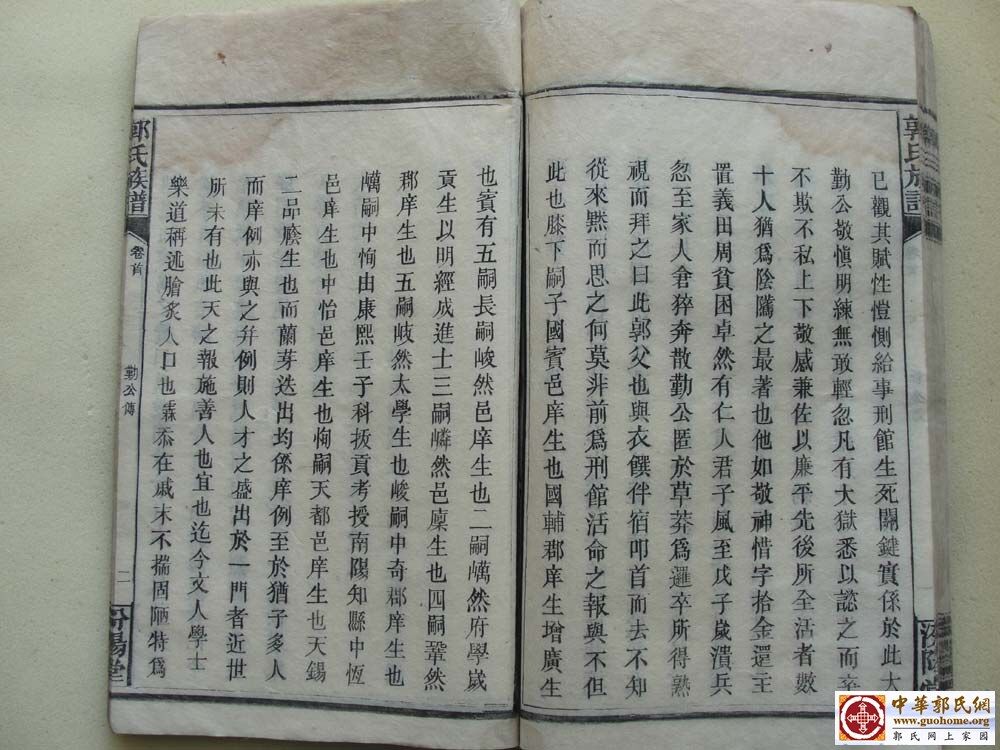 郭氏族譜
已觀其賦性愷惻給事刑館生死關鍵實係於此大
勤公敬慎明練無敢輕忽凡有大獄悉以諗之而奉
不欺不私上下敬感兼佐以廉平先後所全活者數
十人猶爲陰隲之最著也他如敬神惜字拾金還主
置義田周貧困卓然有仁人君子風至戊子歲潰兵
忽至家人倉猝奔散勤公匿於草莽爲邏卒所得熟
視而拜之曰此郭父也與衣饌伴宿叩首而去不知
從來黙而思之何莫非前爲刑館活命之報與不但
此也膝下嗣子國賓邑庠生也國輔郡庠生增廣生
也賓有五嗣長嗣峻然邑庠生也二嗣巁然府學歲
貢生以明經成進士三嗣嶙然邑廩生也四嗣鞏然
郡庠生也五嗣岐然太學生也峻嗣中奇郡庠生也
巁嗣中恂由康熙壬子科拔貢考授南陽知縣中恆
邑庠生也中怡邑庠生也恂嗣天都邑庠生也天錫
二品廕生也而蘭芽迭出均係庠例至於猶子多人
而庠例亦與之并例則人才之盛出於一門者近世
所未有也此天之報施善人也宜也迄今文人學士
樂道稱述膾炙人口也霖忝在戚末不揣固陋特爲
郭氏族譜
卷首
勤公傳
二
汾陽堂
中華郭氏網
www.guohome.org
郭氏網上家園